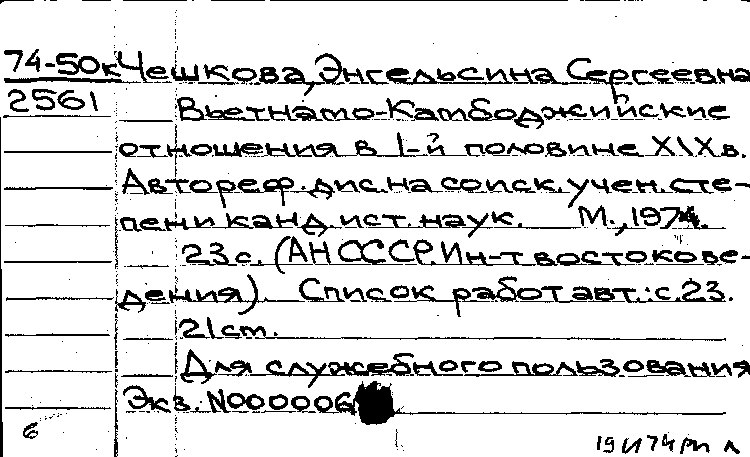 74-50к Чешкова, Энгельсина Сергеевна
2561 Вьетнамо-Камбоджийские
отношения в 1-й половине XIX в.
Автореф. дис. на соиск. учен. сте-
пени канд. ист. наук. М., 1974.
23 с. (АН СССР. Ин-т востокове-
дения). Список работ авт.: с. 23.
21 cm.
Для служебного пользования
Экз. N000006
6